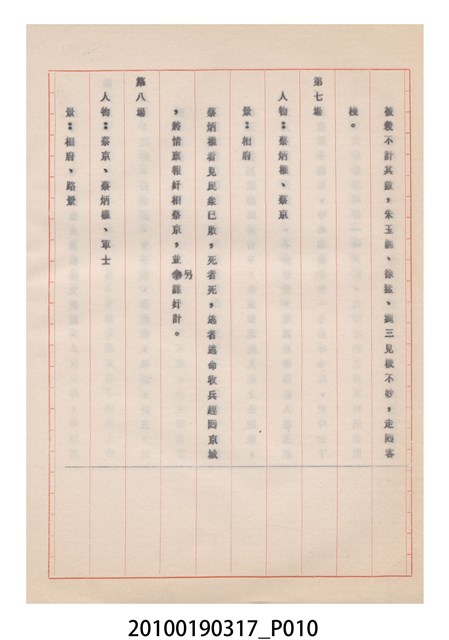 被殺不計其數，朱玉鵬、徐猛、周三見機不妙，走回客
棧。
第七場
人物：蔡炳權、蔡京
景：相府
蔡炳權看見民衆已散，死者死，逃者逃命收兵經回京城
，將情禀報奸相蔡京，並另謀奸計。
第八場
人物：蔡京、蔡炳權、軍士
景：相府、路景
20100190317_P010